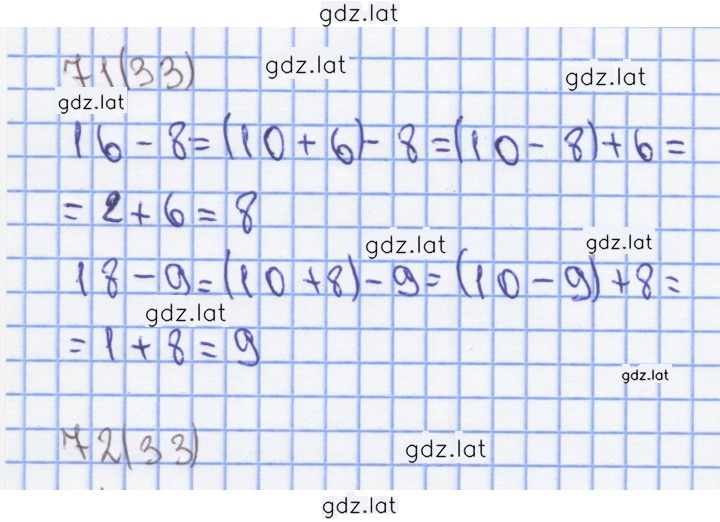 gdz.lat
71(33)
gdz.lat
gdz.lat
gdz.lat
16 - 8 = (10 + 6) - 8 = (10 - 8) + 6 =
= 2 + 6 = 8
gdz.lat
gdz.lat
18 - 9 = (10 + 8) - 9 = (10 - 9) + 8 =
gdz.lat
= 1 + 8 = 9
gdz.lat
72(33)
gdz.lat
gdz.lat